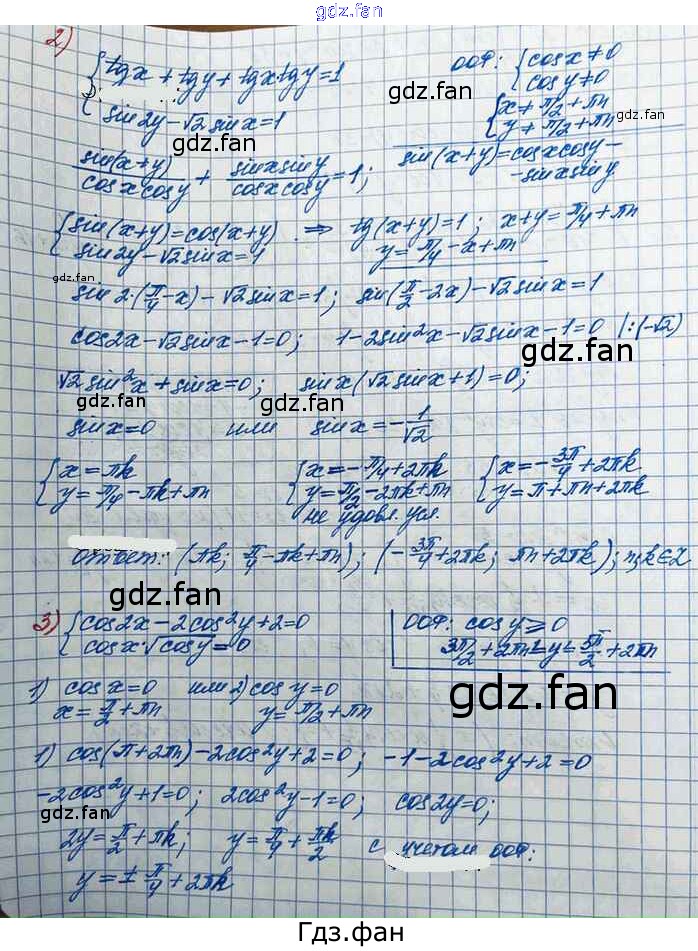 gdz.fan
2) { tgx + tgy + tgx tgy = 1
ООФ: { cosx ≠ 0
cosy ≠ 0
gdz.fan
sin2y - √2 sinx = 1
{ x ≠ π/2 + πn
y ≠ π/2 + πn
gdz.fan
sin(x+y)/cosxcosy + sinxsiny/cosxcosy = 1;
sin(x+y) = cosxcosy -
- sinxsiny
gdz.fan
{ sin(x+y) = cos(x+y) ⇒ tg(x+y) = 1; x+y = π/4 + πn
sin2y - √2 sinx = 1
y = π/4 - x + πn
gdz.fan
sin2·(π/4 - x) - √2 sinx = 1; sin(π/2 - 2x) - √2 sinx = 1
cos2x - √2 sinx - 1 = 0; 1 - 2sin²x - √2 sinx - 1 = 0 |:(-√2)
gdz.fan
√2 sin²x + sinx = 0; sinx(√2 sinx + 1) = 0;
gdz.fan gdz.fan
sinx = 0 или sinx = -1/√2
{ x = πk
y = π/4 - πk + πn
{ x = -π/4 + 2πk
y = π/2 - 2πk + πn
не удовл. усл.
{ x = -3π/4 + 2πk
y = π + πn + 2πk
gdz.fan
Ответ: (πk; π/4 - πk + πn); (-3π/4 + 2πk; πn + 2πk); n,k ∈ Z
gdz.fan gdz.fan
3) { cos2x - 2cos²y + 2 = 0
cosx·√cosy = 0
ООФ: cosy ≥ 0
3π/2 + 2πn ≤ y ≤ 5π/2 + 2πn
gdz.fan
1) cosx = 0 или 2) cosy = 0
x = π/2 + πn y = π/2 + πn
gdz.fan
1) cos(π + 2πn) - 2cos²y + 2 = 0; -1 - 2cos²y + 2 = 0
-2cos²y + 1 = 0; 2cos²y - 1 = 0; cos2y = 0;
gdz.fan
gdz.fan
2y = π/2 + πk; y = π/4 + πk/2 с учетом ООФ:
y = ± π/4 + 2πk
gdz.fan
Гдз.фан